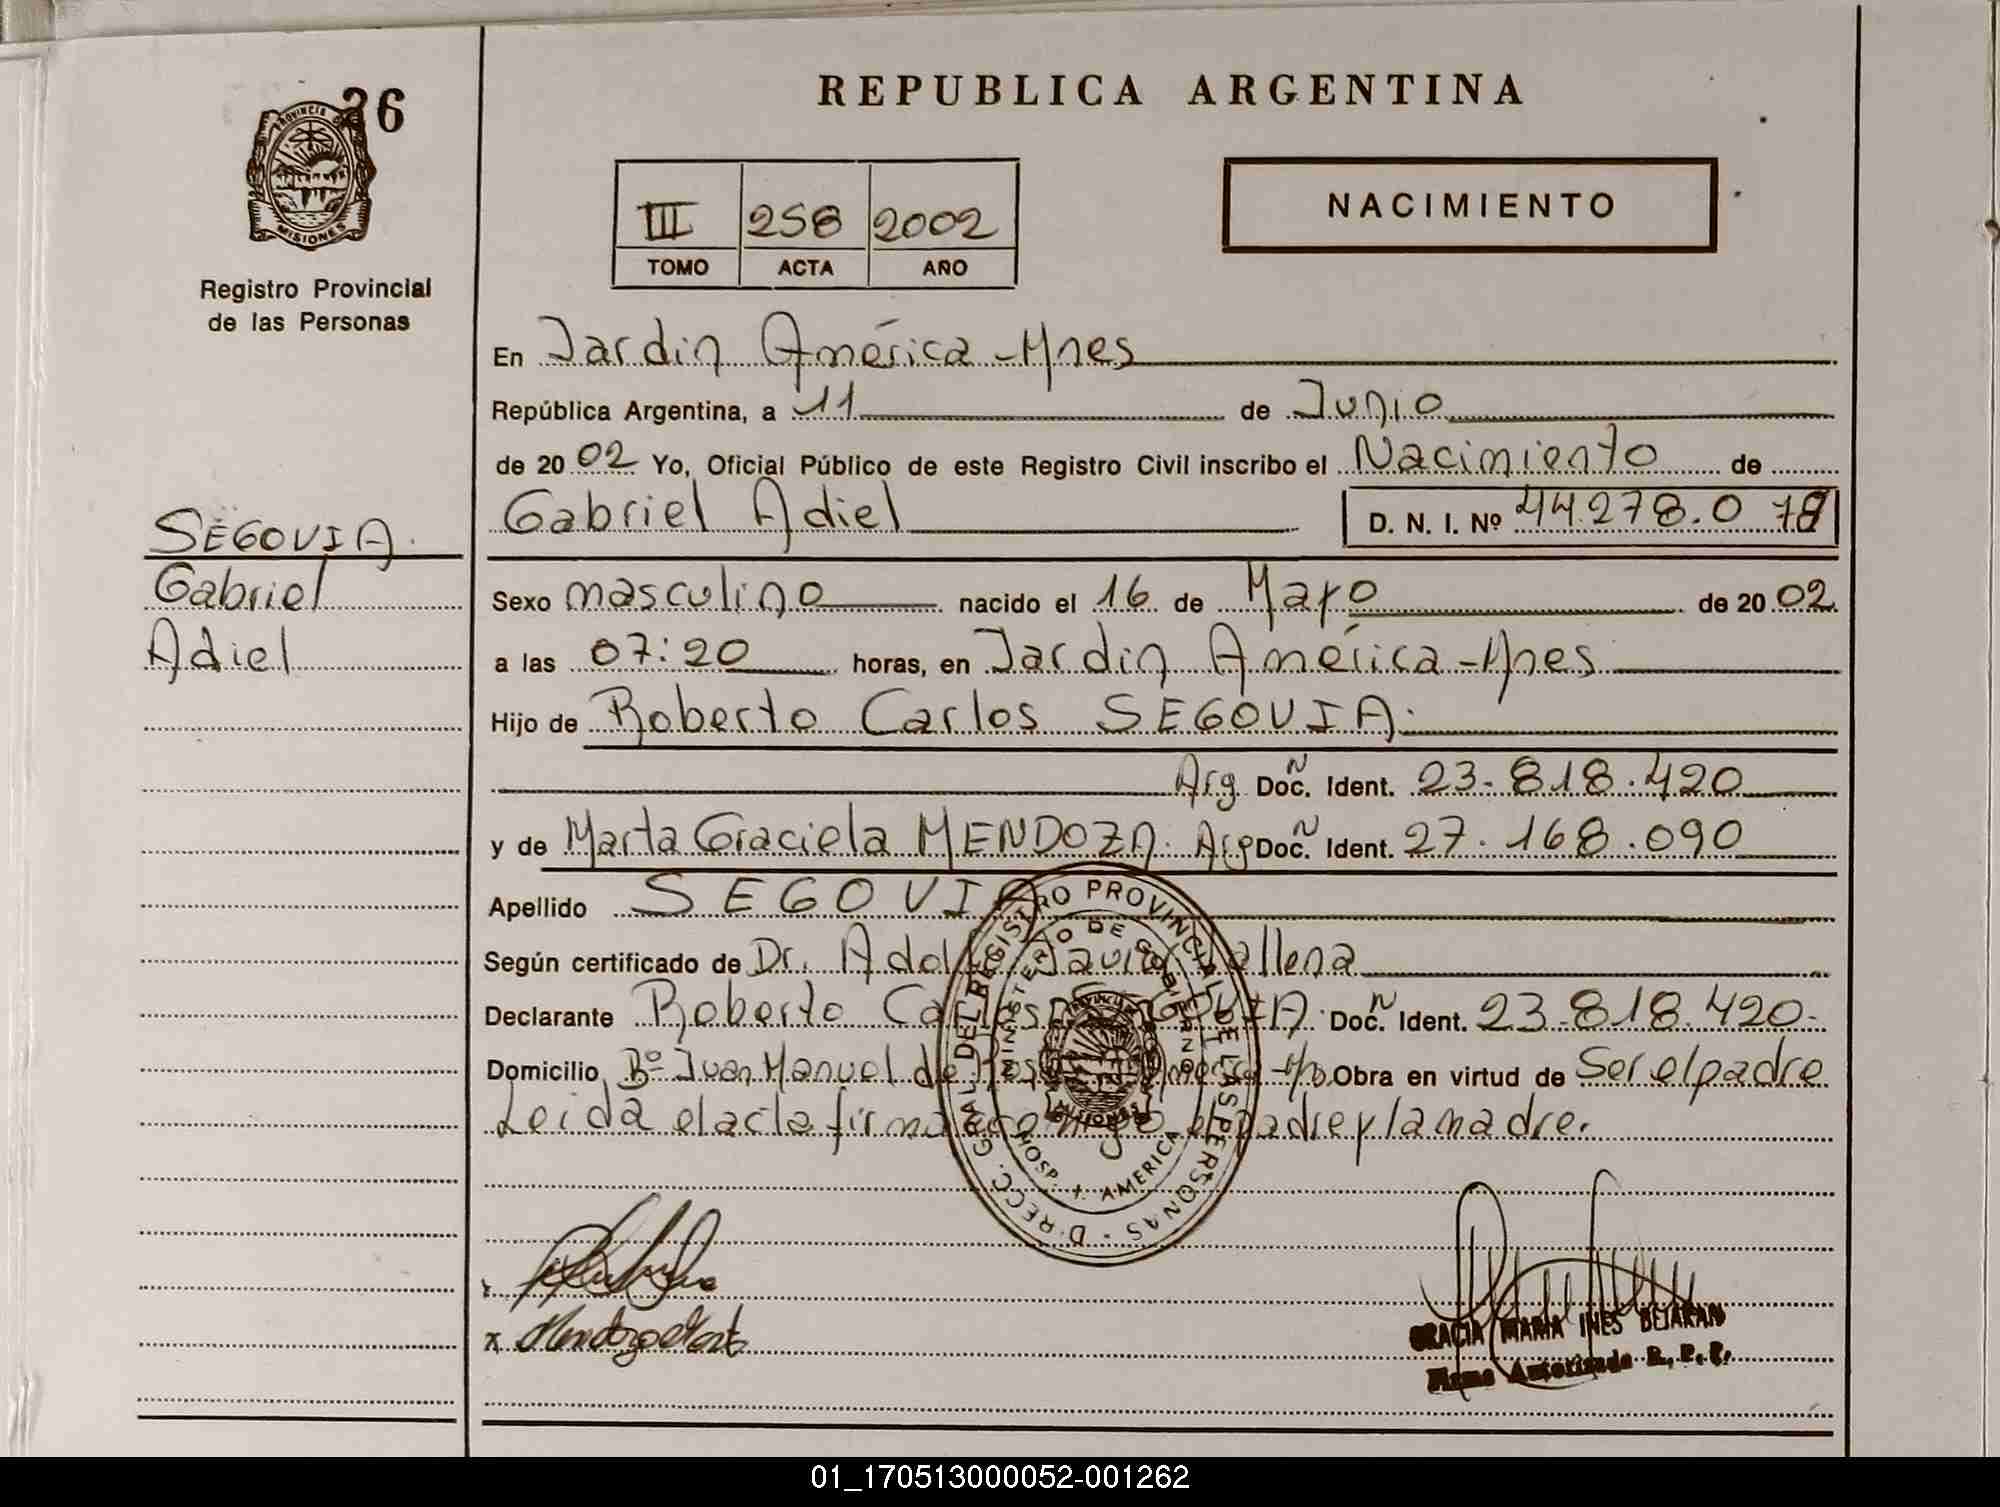 36
PROVINCIA DE
MISIONES
Registro Provincial
de las Personas
REPUBLICA ARGENTINA
III 258 2002
TOMO ACTA AÑO
NACIMIENTO
En Jardin América - Mnes
República Argentina, a 11 de Junio
de 2002 Yo, Oficial Público de este Registro Civil inscribo el Nacimiento de
Gabriel Adiel D. N. I. Nº 44.278.0
SEGOVIA.
Gabriel
Adiel
Sexo masculino nacido el 16 de Mayo de 2002
a las 07:20 horas, en Jardin América - Mnes
Hijo de Roberto Carlos SEGOVIA.
Arg. Doc. N Ident. 23.818.420
y de Marta Graciela MENDOZA. Arg Doc. N Ident. 27.168.090
Apellido SEGOVIA
Según certificado de Dr. Adolfo Javier
Declarante Roberto Carlos SEGOVIA. Doc. N Ident. 23.818.420.
Domicilio Bº Juan Manuel de Obra en virtud de Ser el padre
Leida el acta firma el padre y la madre.
DIRECC. GRAL DEL REGISTRO PROVINCIAL DE LAS PERSONAS
MINISTERIO DE GOBIERNO
PROVINCIA DE
MISIONES
HOSP. J. AMERICA
x Mendoza Marta
GRACIA MARIA INES BEJARAN
Firma Autorizada R. P. P.
01_170513000052-001262